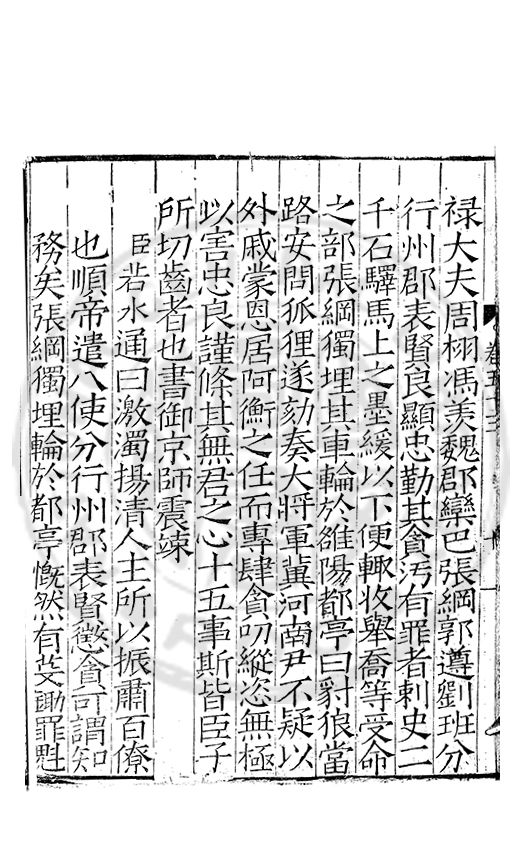 禄大夫周栩馮羡魏郡欒巴張綱郭遵劉班分
行州郡表賢良顯忠勤其貪汚有罪者刺史二
千石驛馬上之墨綬以下便輙收舉喬等受命
之部張綱獨埋其車輪於雒陽都亭曰豺狼當
路安問狐狸遂劾奏大將軍冀河南尹不疑以
外戚蒙恩居阿衡之任而專肆貪叨縱恣無極
以害忠良謹條其無君之心十五事斯皆臣子
所切齒者也書御京師震竦
臣若水通曰激濁揚清人主所以振肅百僚
也順帝遣八使分行州郡表賢懲貪可謂知
務矣張綱獨埋輪於都亭慨然有芟鋤罪魁